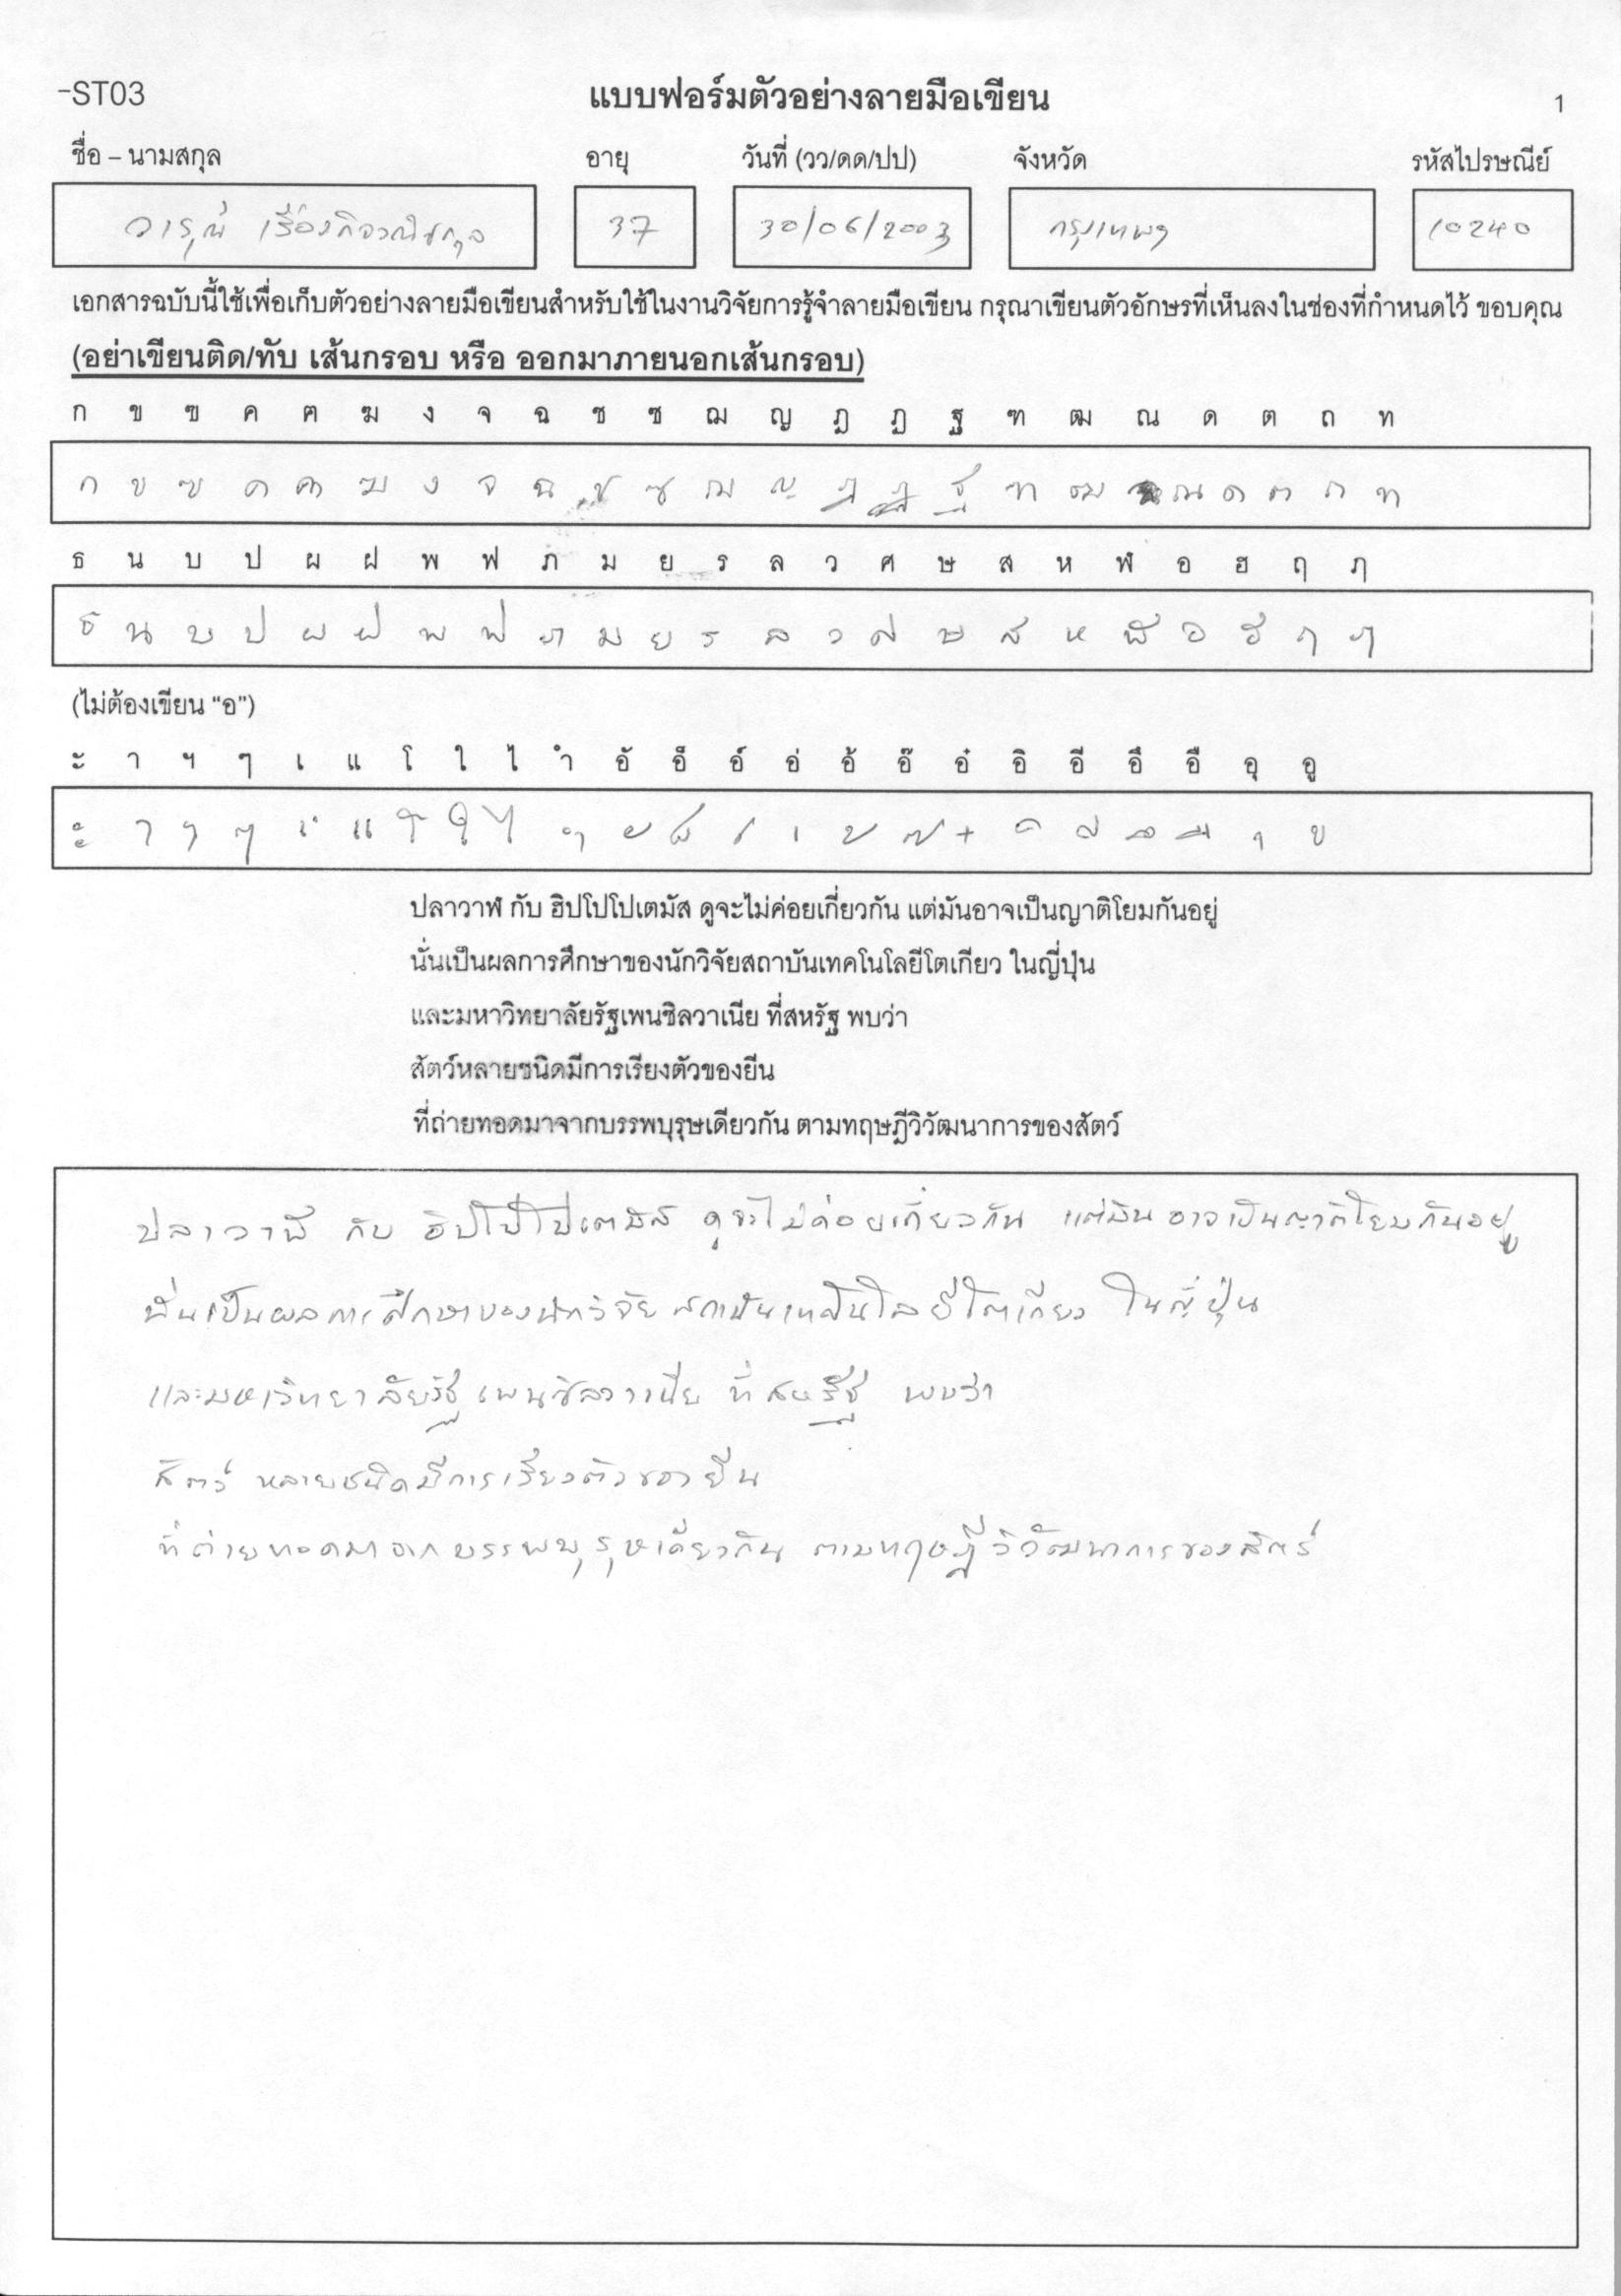 -ST03 แบบฟอร์มตัวอย่างลายมือเขียน 1
ชื่อ – นามสกุล อายุ วันที่ (วว/ดด/ปป) จังหวัด รหัสไปรษณีย์
วารุณี 37 30/06/2003 กรุงเทพฯ 10240
เอกสารฉบับนี้ใช้เพื่อเก็บตัวอย่างลายมือเขียนสำหรับใช้ในงานวิจัยการรู้จำลายมือเขียน กรุณาเขียนตัวอักษรที่เห็นลงในช่องที่กำหนดไว้ ขอบคุณ
(อย่าเขียนติด/ทับ เส้นกรอบ หรือ ออกมาภายนอกเส้นกรอบ)
ก ข ฃ ค ฅ ฆ ง จ ฉ ช ซ ฌ ญ ฎ ฏ ฐ ฑ ฒ ณ ด ต ถ ท
ก ข ฃ ค ฅ ฆ ง จ ฉ ช ซ ฌ ญ ฎ ฏ ฐ ฑ ฒ ณ ด ต ถ ท
ธ น บ ป ผ ฝ พ ฟ ภ ม ย ร ล ว ศ ษ ส ห ฬ อ ฮ ฤ ฦ
ธ น บ ป ผ ฝ พ ฟ ภ ม ย ร ล ว ศ ษ ส ห ฬ อ ฮ ฤ ฦ
(ไม่ต้องเขียน “อ”)
ะ า ฯ ๆ เ แ โ ใ ไ ำ อั อ็ อ์ อ่ อ้ อ๊ อ๋ อิ อี อึ อื อุ อู
ะ า ฯ ๆ เ แ โ ใ ไ ำ ั ็ ์ ่ ้ ๊ ๋ ิ ี ึ ื ุ ู
ปลาวาฬ กับ ฮิปโปโปเตมัส ดูจะไม่ค่อยเกี่ยวกัน แต่มันอาจเป็นญาติโยมกันอยู่
นั่นเป็นผลการศึกษาของนักวิจัยสถาบันเทคโนโลยีโตเกียว ในญี่ปุ่น
และมหาวิทยาลัยรัฐเพนซิลวาเนีย ที่สหรัฐ พบว่า
สัตว์หลายชนิดมีการเรียงตัวของยีน
ที่ถ่ายทอดมาจากบรรพบุรุษเดียวกัน ตามทฤษฎีวิวัฒนาการของสัตว์
ปลาวาฬ กับ ฮิปโปโปเตมัส ดูจะไม่ค่อยเกี่ยวกัน แต่มันอาจเป็นญาติโยมกันอยู่
นั่นเป็นผลการศึกษาของนักวิจัยสถาบันเทคโนโลยีโตเกียว ในญี่ปุ่น
และมหาวิทยาลัยรัฐเพนซิลวาเนีย ที่สหรัฐ พบว่า
สัตว์ หลายชนิดมีการเรียงตัวของยีน
ที่ถ่ายทอดมาจากบรรพบุรุษเดียวกัน ตามทฤษฎีวิวัฒนาการของสัตว์